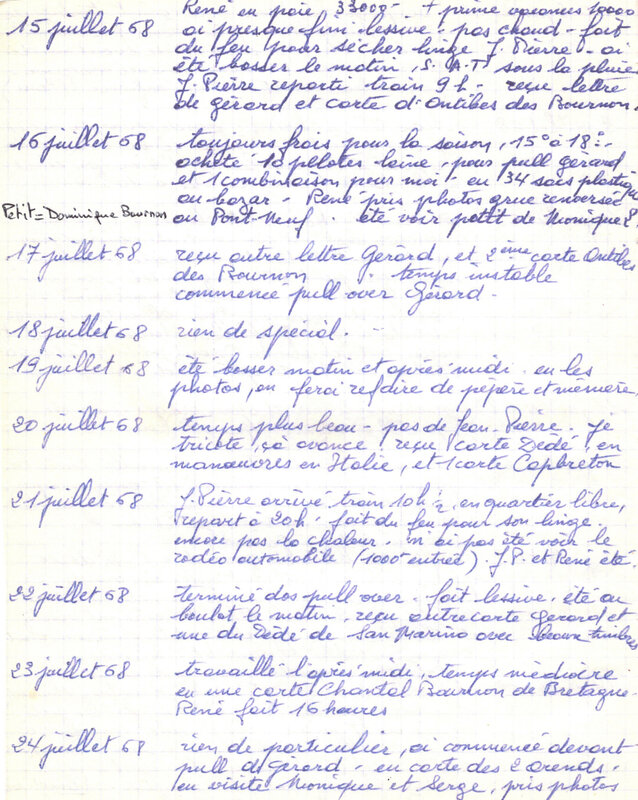 René eu paie 33000 - + prime vacances 10000
15 juillet 68 ai presque fini lessive - pas chaud - fait
du feu pour sécher linge J. Pierre - ai
été bosser le matin, S.A.T. sous la pluie
J. Pierre reparti train 9h - reçu lettre
de gérard et carte d'Antibes des Bournon -
16 juillet 68 toujours frais pour la saison, 15° à 18° -
acheté 10 pelotes laine - pour pull gérard
et 1 combinaison pour moi - eu 34 sacs plastique
au bazar - René pris photos grue renversée
Petit = Dominique Bournon au Pont-Neuf - été voir petit de Monique
17 juillet 68 reçu autre lettre Gérard, et 2ème carte Antibes
des Bournon - temps instable
commencé pull over Gérard -
18 juillet 68 rien de spécial -
19 juillet 68 été bosser matin et après midi - eu les
photos, en ferai refaire de pépère et mémère
20 juillet 68 temps plus beau - pas de Jean-Pierre - je
tricote, çà avance, reçu carte Dédé, en
manœuvres en Italie, et 1 carte Capbreton
21 juillet 68 J. Pierre arrivé train 10h 1/2, en quartier libre,
repart à 20h - fait du feu pour son linge -
encore pas la chaleur - n'ai pas été voir le
rodéo automobile (1000 entrée) - J.P. et René été -
22 juillet 68 terminé dos pull over - fait lessive - été au
boulot le matin, reçu autre carte gérard et
une du Dédé de San Marino avec beaux timbres
23 juillet 68 travaillé l'après midi, temps médiocre
eu une carte Chantal Bournon de Bretagne -
René fait 16 heures
24 juillet 68 rien de particulier, ai commencé devant
pull de Gérard - eu carte des 2 Arends -
eu visite Monique et Serge, pris photos